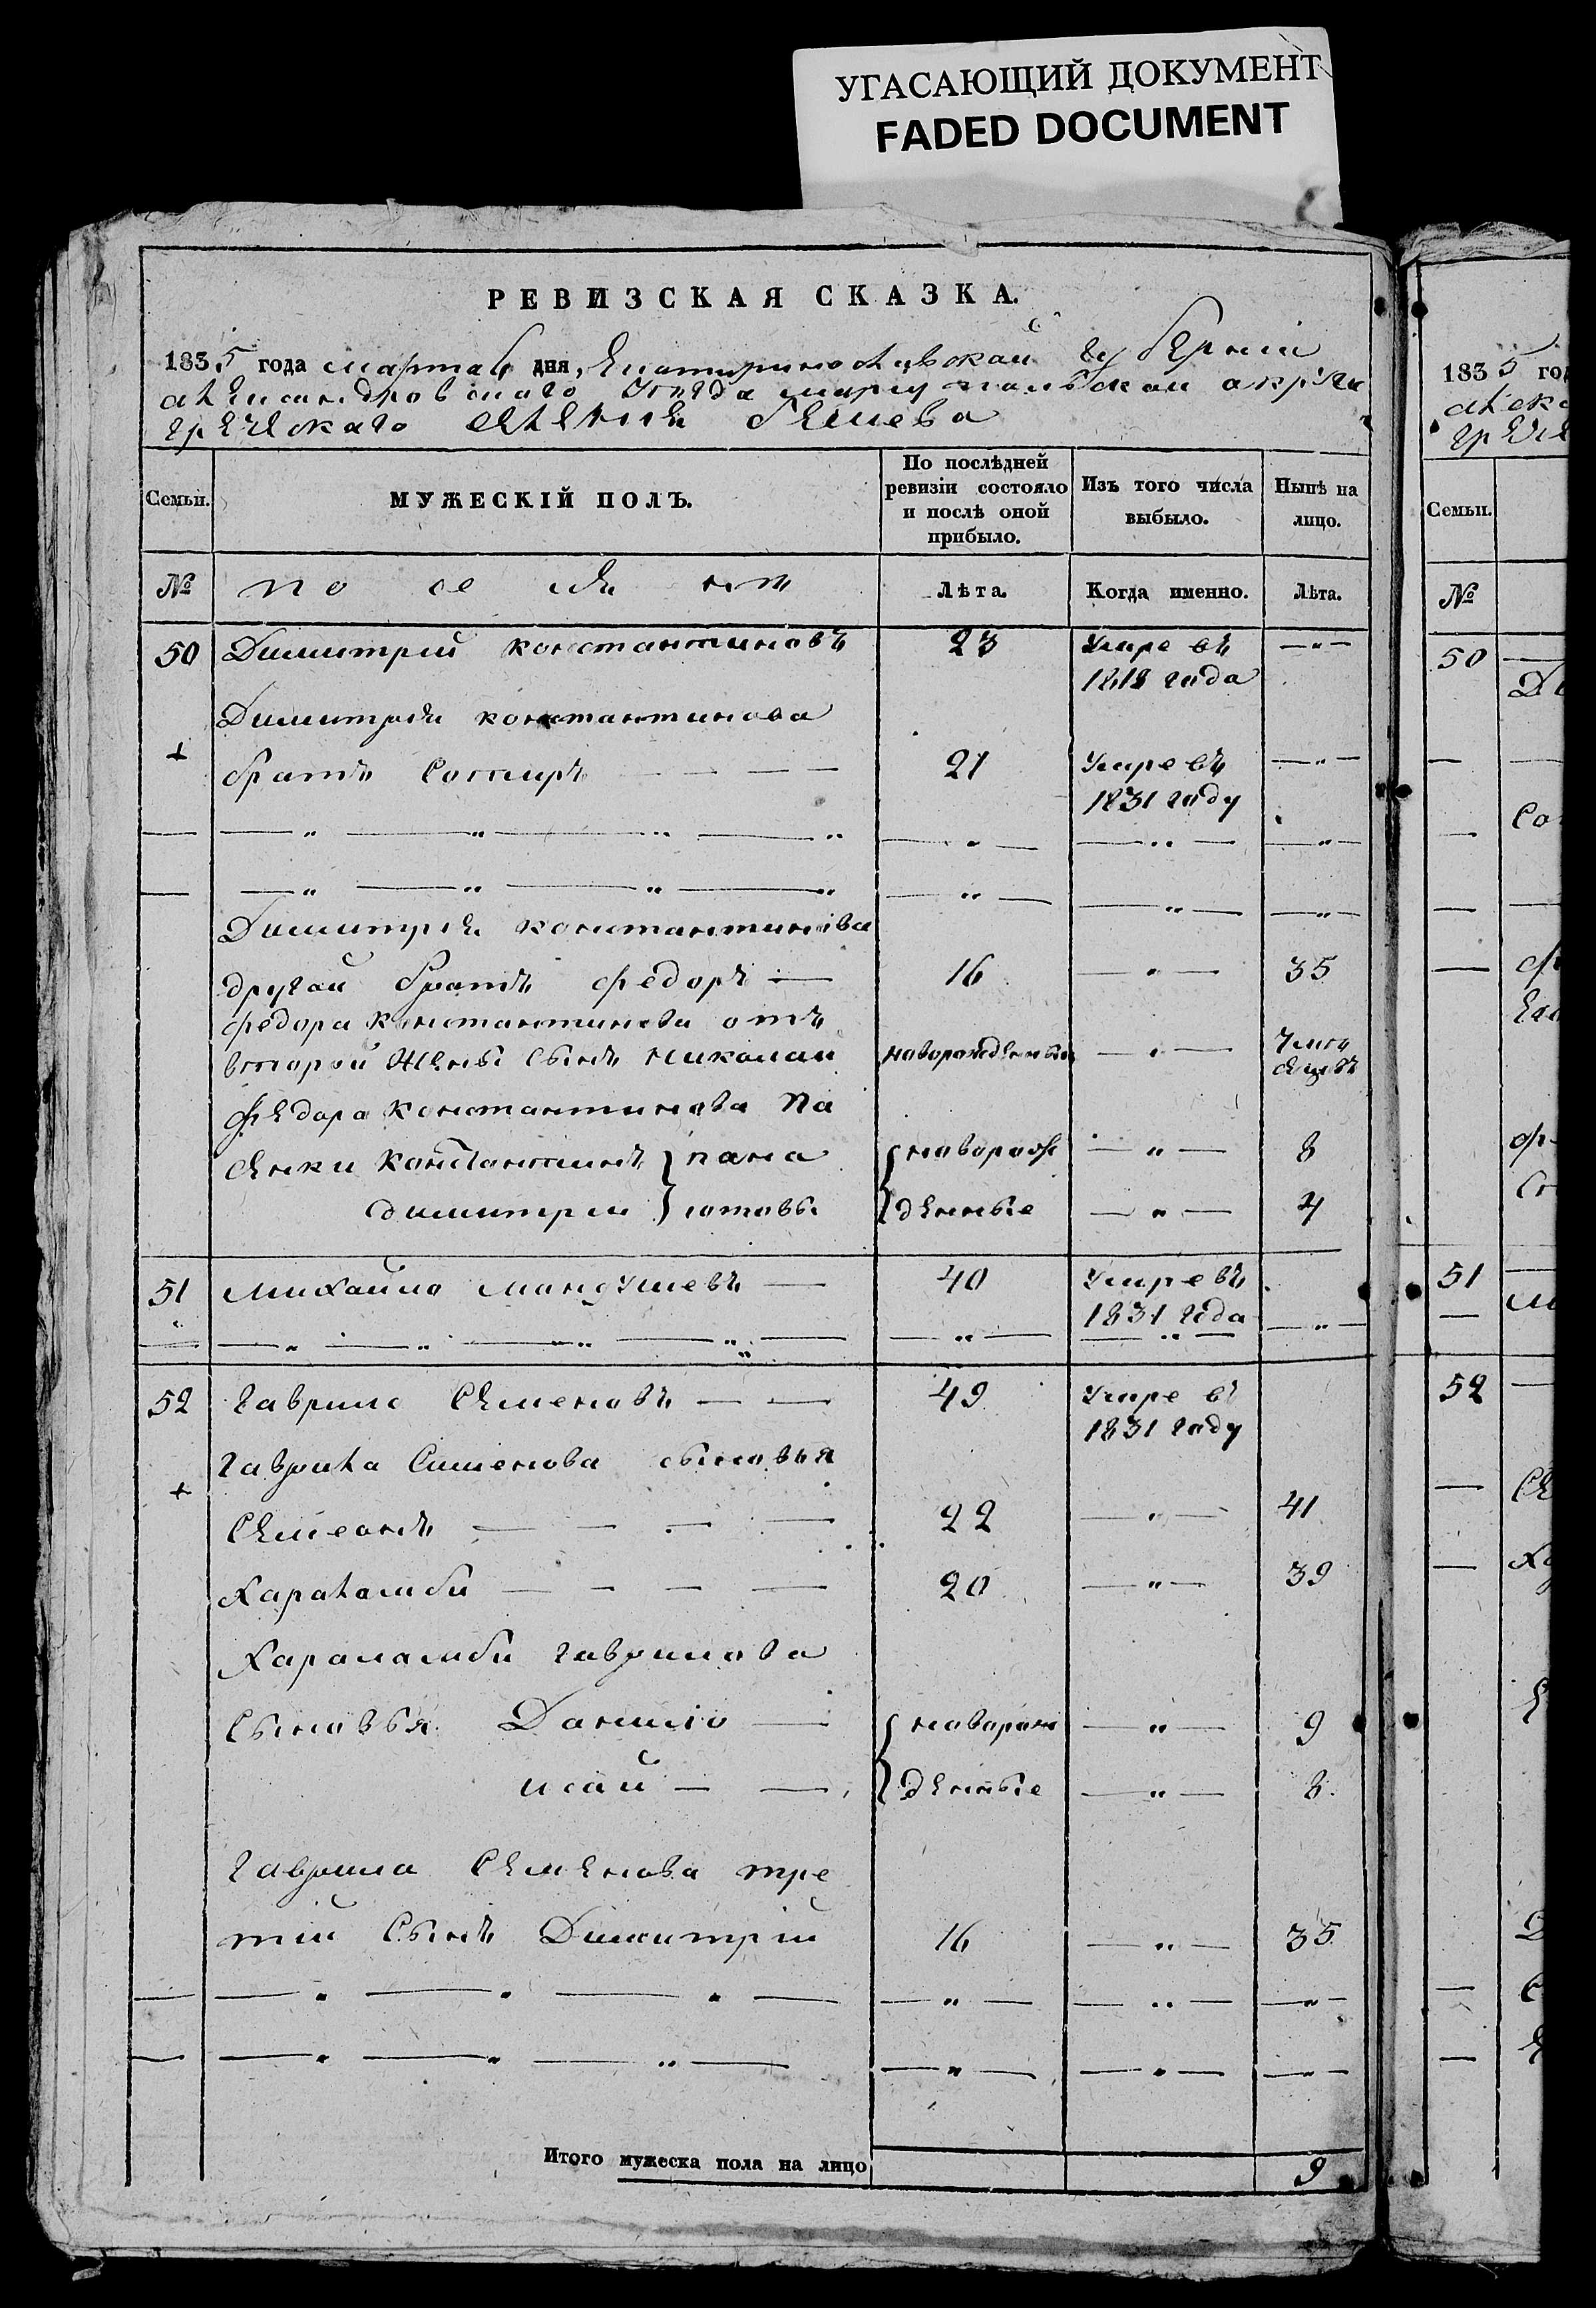 УГАСАЮЩИЙ ДОКУМЕНТ
FADED DOCUMENT
РЕВИЗСКАЯ СКАЗКА.
1835 года марта дня, губернии
мариупольскаи
греческаго бешева
Семьи. МУЖЕСКІЙ ПОЛЪ. По послѣдней ревизіи состояло и послѣ оной прибыло. Изъ того числа выбыло. Нынѣ на лицо.
№ Лѣта. Когда именно. Лѣта.
50 Димитрий константиновъ 23 Умре въ
1818 года
Димитрия константинова
+ братъ Сотиръ 21 Умре въ
1831 году
Димитрия константинова
другаи братъ федоръ 16 35
федора константинова отъ
второй жены сынъ николаи наворожденный
федора константинова па
сенки константинъ наворож 8
димитрии денные 4
51 михайло мандушевъ 40 Умре въ
1831 года
52 гаврило Семеновъ 49 Умре въ
1831 году
гаврила Сименова сыновья
+ Симеонъ 22 41
Хараламби 20 39
Хараламби гаврилова
Сыновья Данило наворож 9
исай денные 8
гаврила Семенова тре
тій Сынъ Димитрій 16 35
Итого мужеска пола на лицо 9
1835 го
Семьи.
№
50
51
52